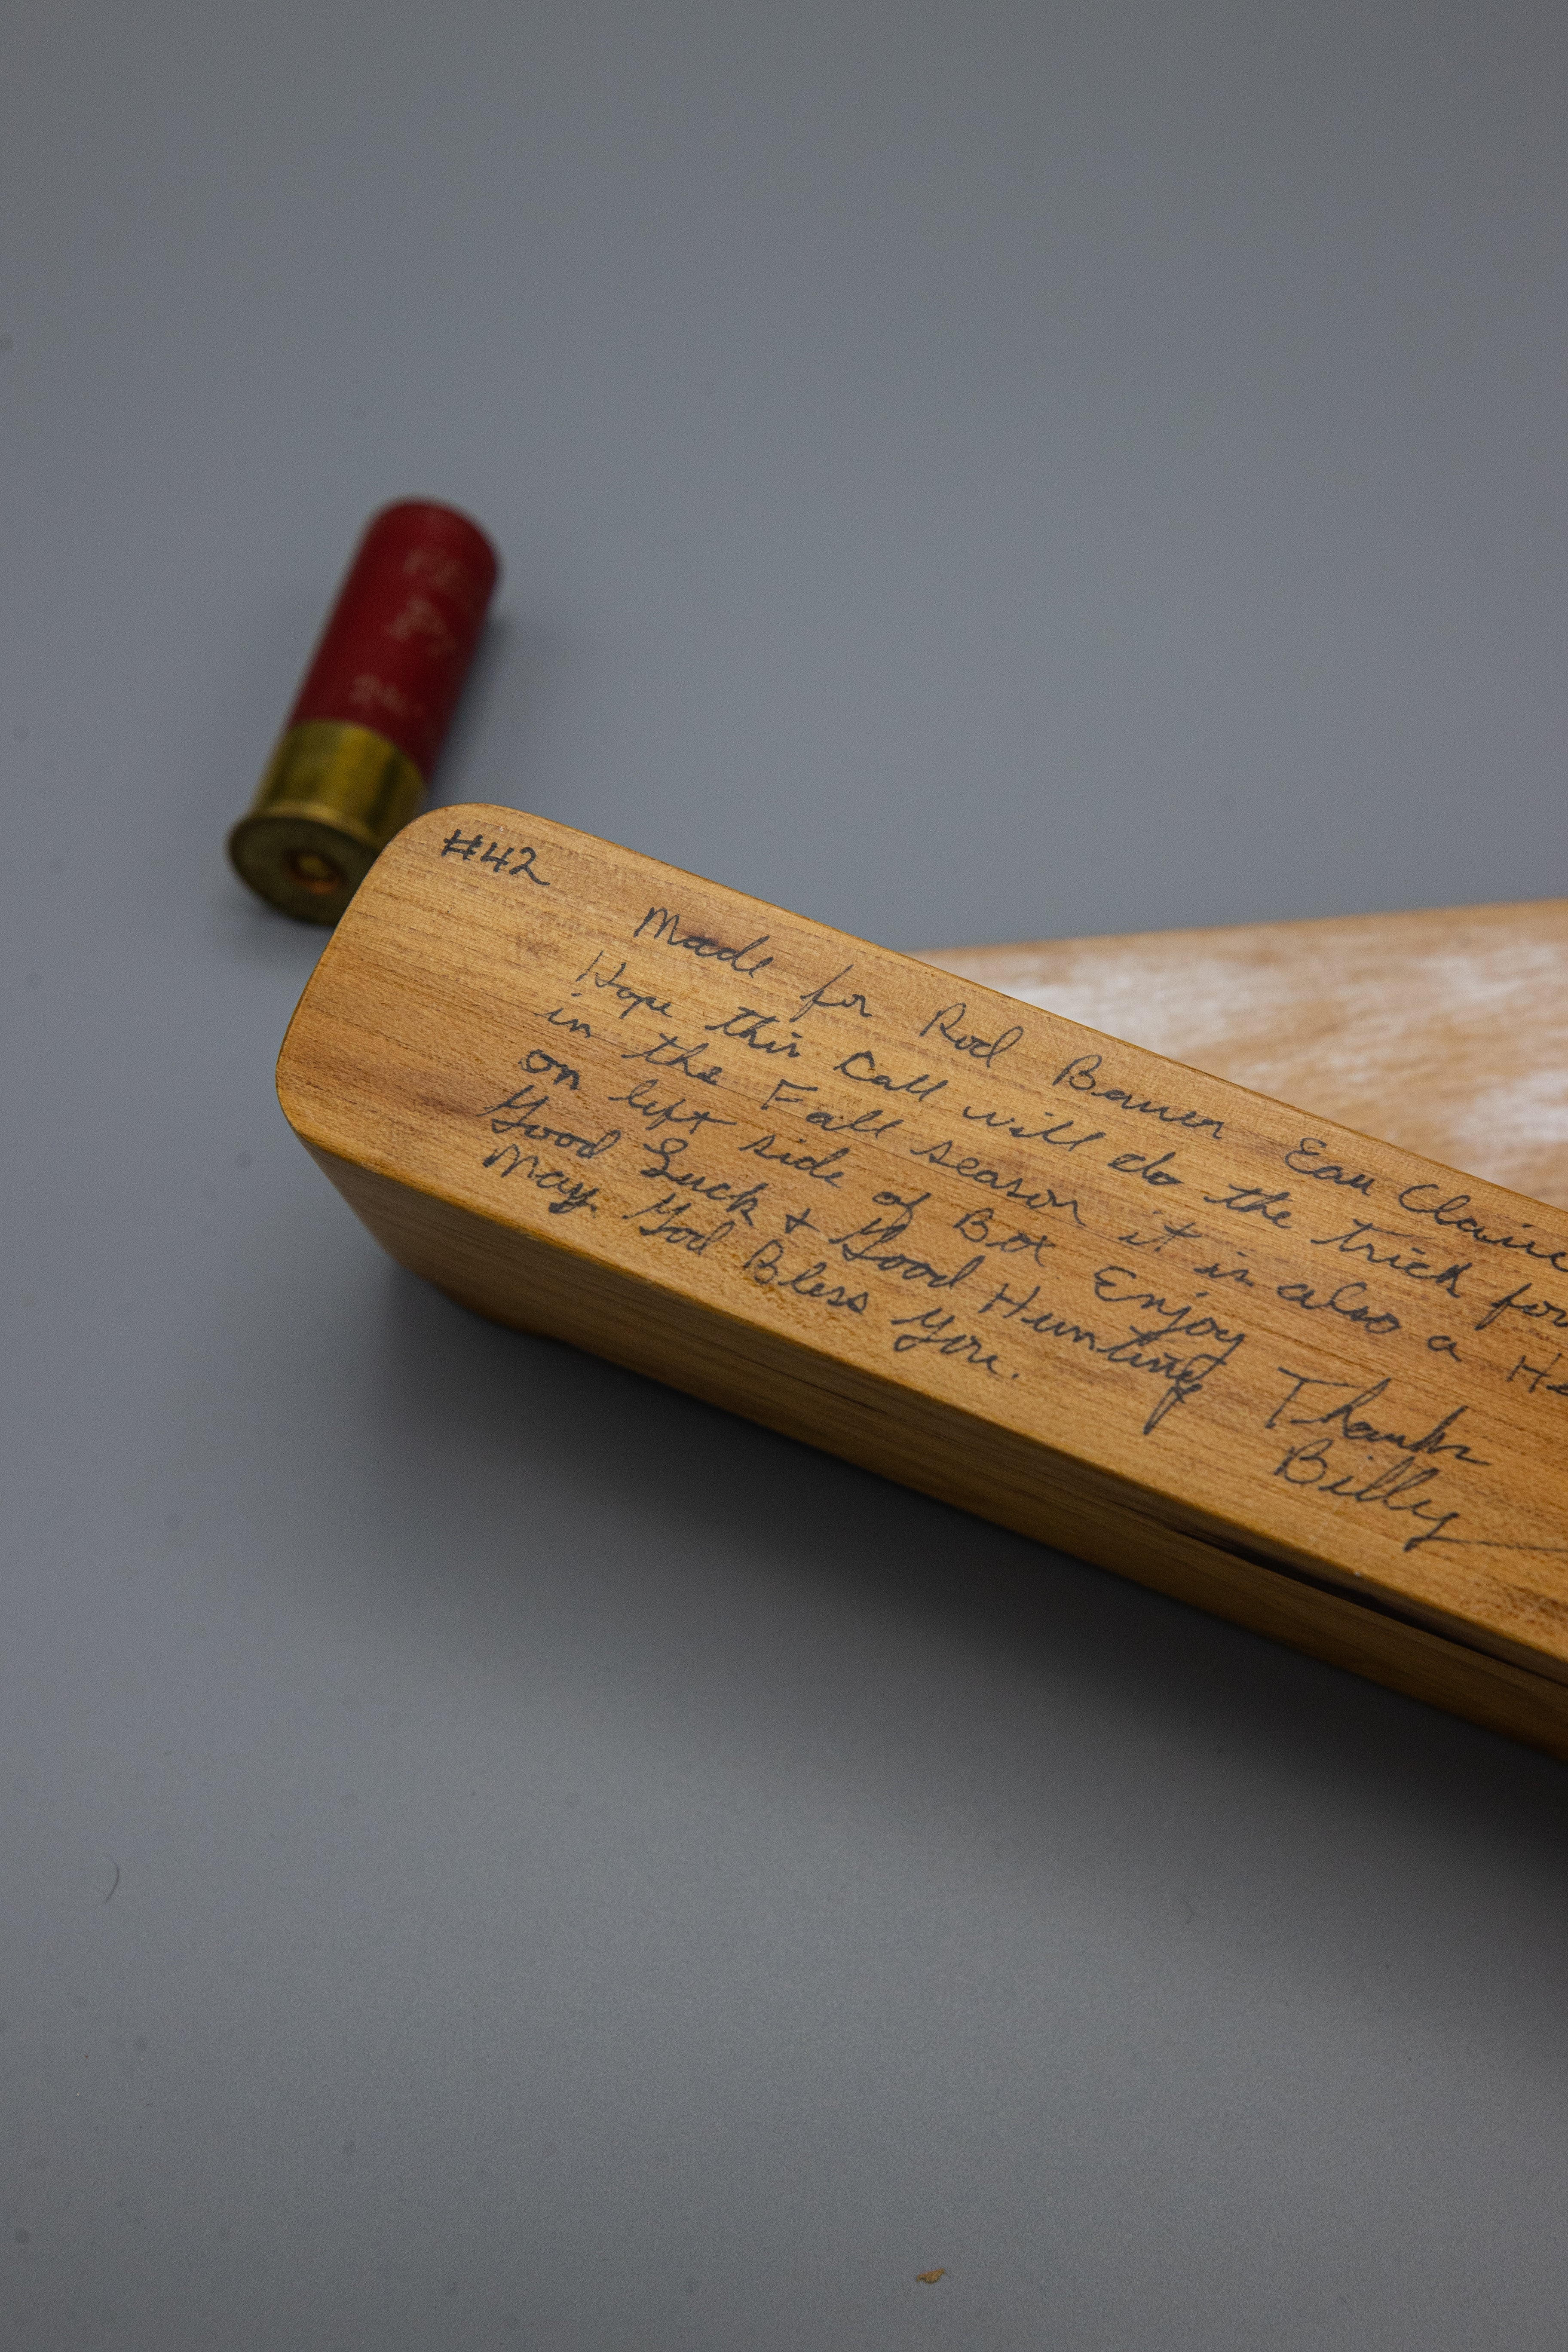 #42
Made for Rod Bauer Eau Claire
Hope this Call will do the trick for
in the Fall season it is also a
on left side of Box Enjoy
Good Luck & Good Hunting Thanks
May God Bless You. Billy